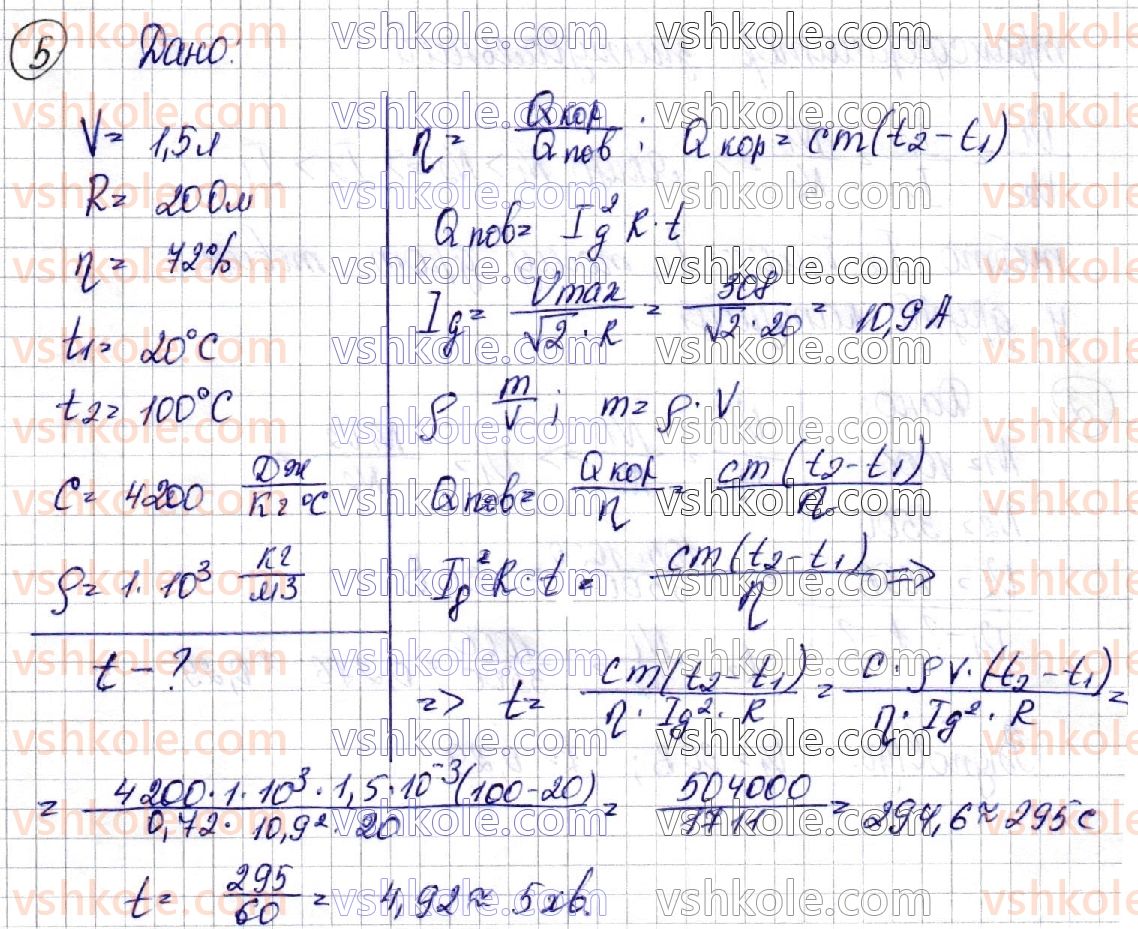 5 Дано:
V = 1,5 л
R = 20 Ом
η = 72%
t₁ = 20°C
t₂ = 100°C
C = 4200 Дж/кг°C
ρ = 1·10³ кг/м3
t - ?
η = Qкор/Qпов ; Qкор = cm(t₂-t₁)
Qпов = Ig²R·t
Ig = Vmax/(√2·R) = 308/(√2·20) = 10,9 A
ρ m/V ; m = ρ·V
Qпов = Qкор/η = cm(t₂-t₁)/η
Ig²R·t = cm(t₂-t₁)/η =>
=> t = cm(t₂-t₁)/(η·Ig²·R) = C·ρV·(t₂-t₁)/(η·Ig²·R) =
= 4200·1·10³·1,5·10⁻³(100-20)/(0,72·10,9²·20) = 504000/1711 = 294,6 ≈ 295 с
t = 295/60 = 4,92 ≈ 5 хв.
vshkole.com